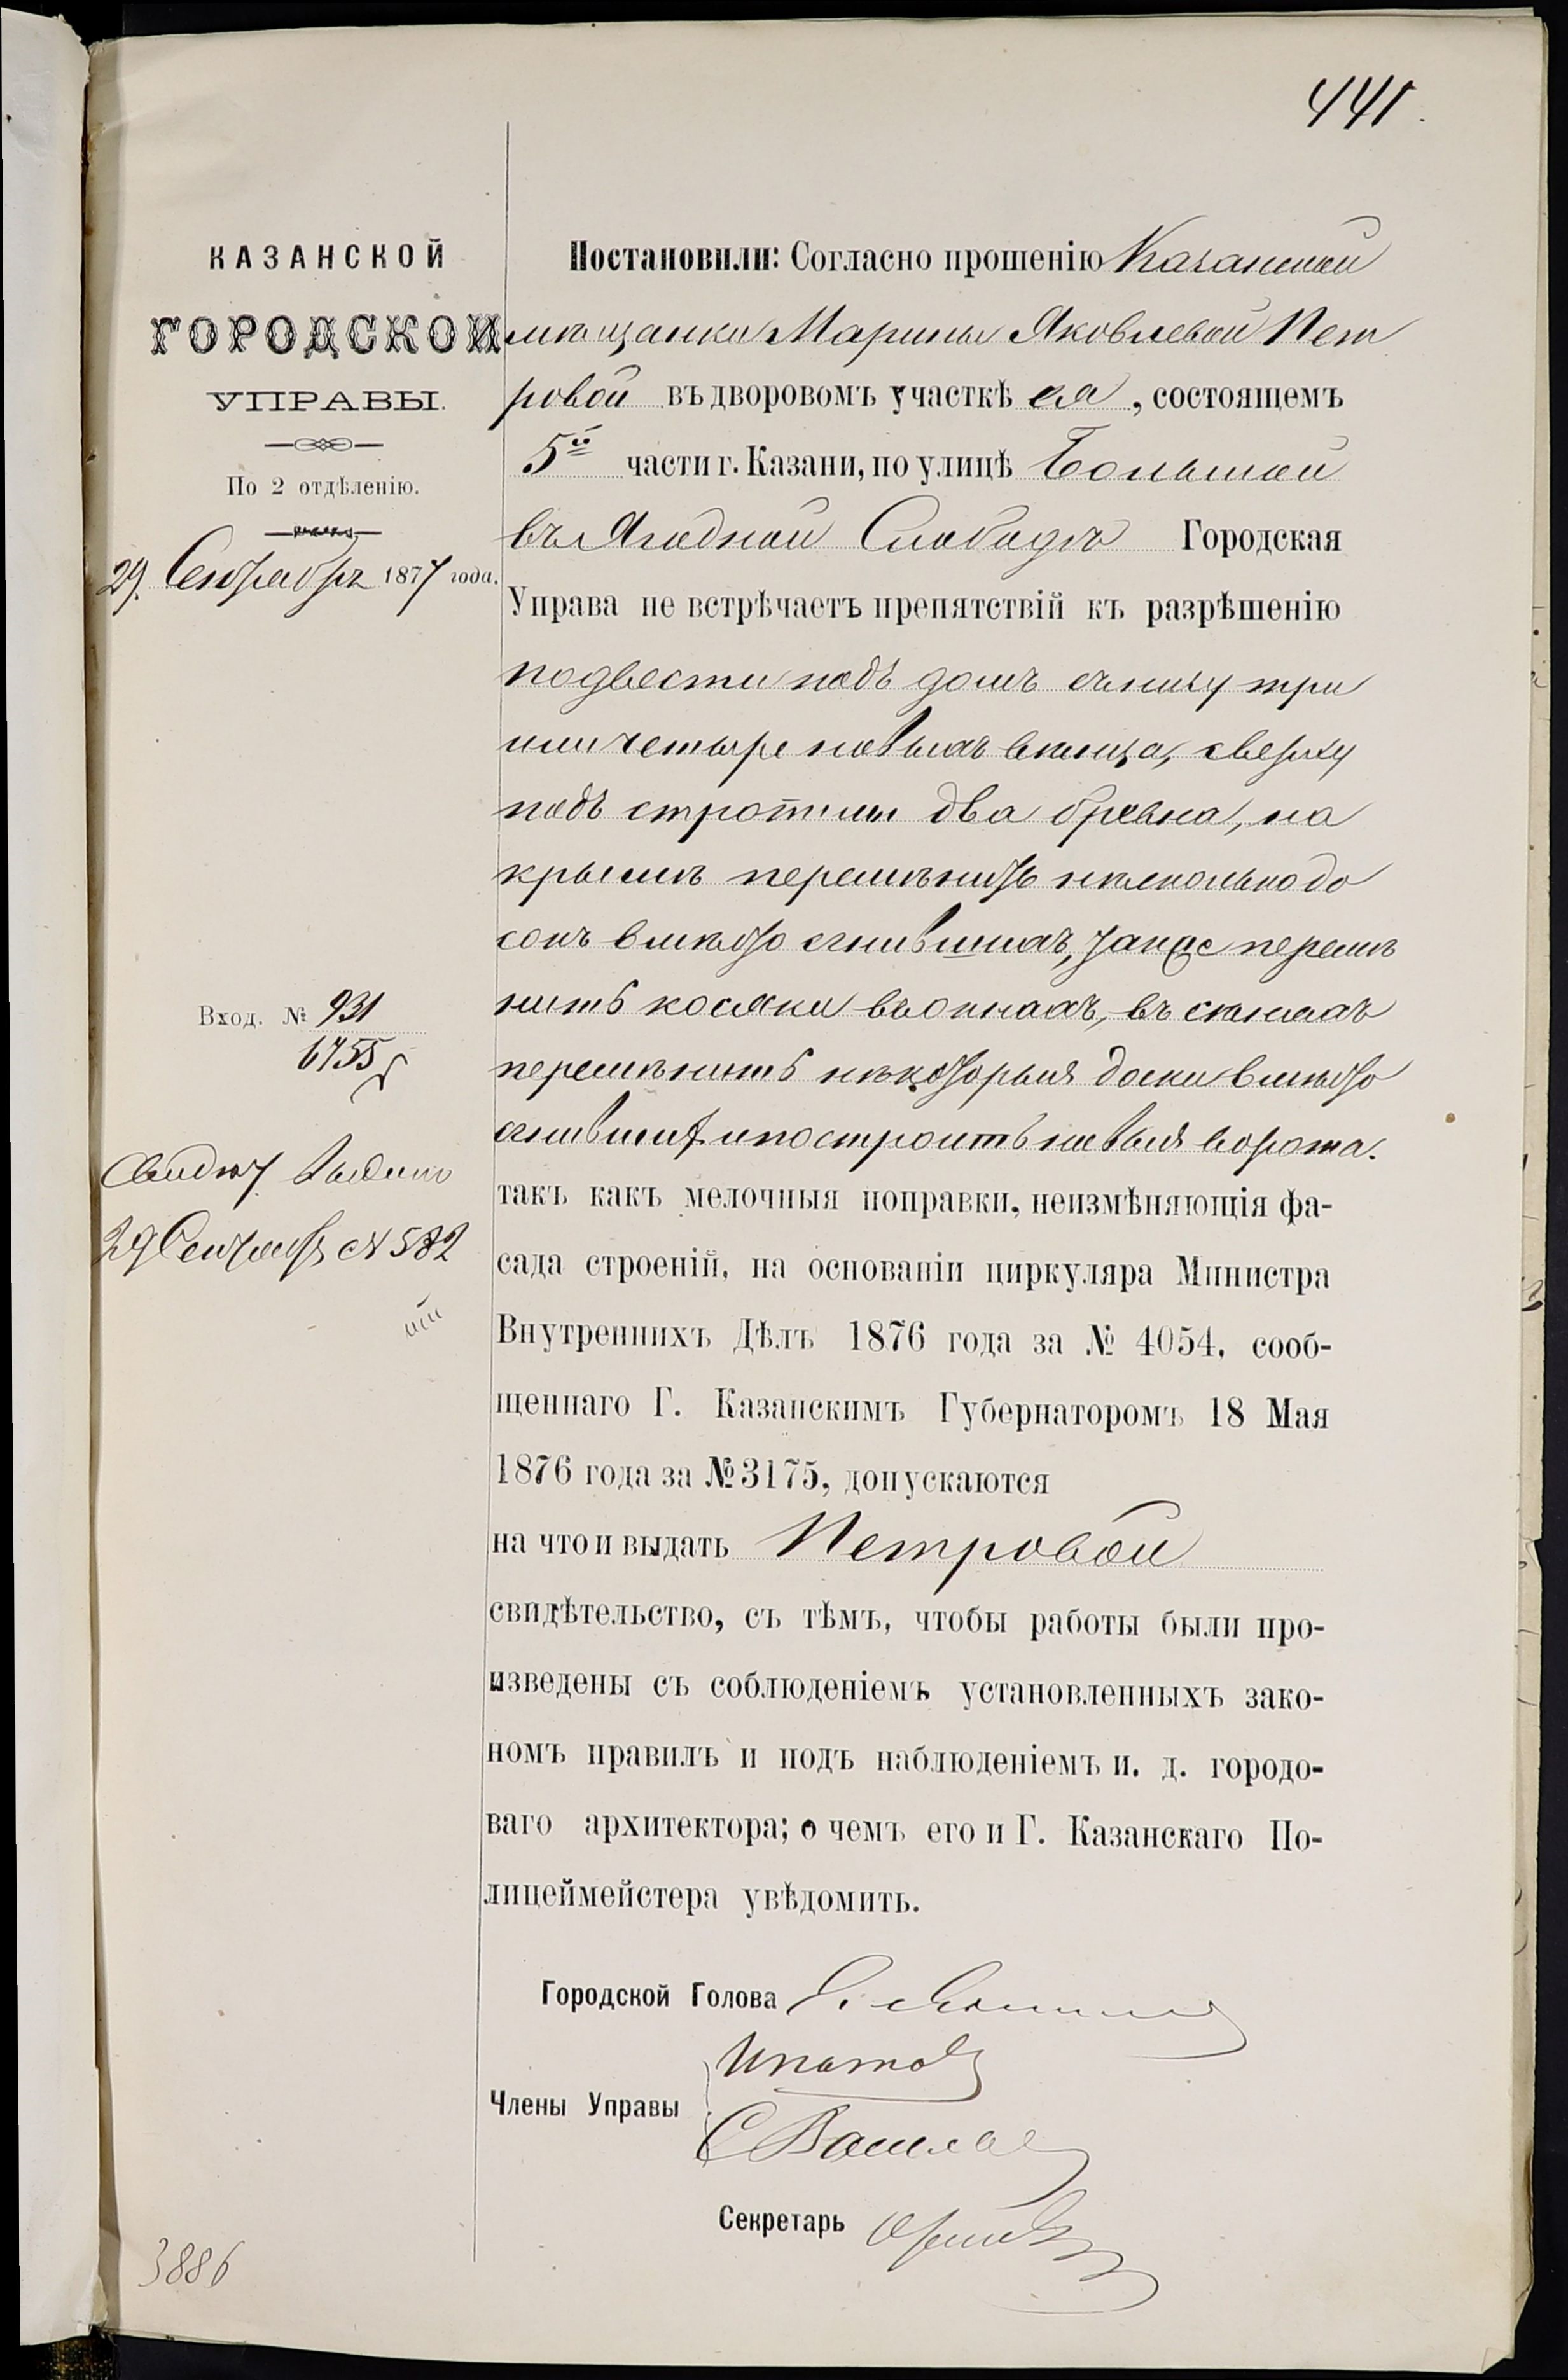 441.
КАЗАНСКОЙ
ГОРОДСКОЙ
УПРАВЫ.
По 2 отдѣленію.
29. Сентября 1877 года.
Вход. № 931
6755
Свидѣт. выдано
29 Сентября № 582
3886
Постановили: Согласно прошенію Казанской
мѣщанки Марины Яковлевой Пет
ровой въ дворовомъ участкѣ ея, состоящемъ
5й части г. Казани, по улицѣ Большой
въ Ягодной Слободѣ Городская
Управа не встрѣчаетъ препятствій къ разрѣшенію
подвести подъ домъ снизу три
или четыре новыхъ венца, сверху
подъ стропилы два бревна, на
крышѣ перемѣнить нѣсколько до
сокъ вмѣсто сгнившихъ, также перемѣ
нить косяки въ окнахъ, въ сѣняхъ
перемѣнить нѣкоторыя доски вмѣсто
сгнившихъ и построить новыя ворота.
такъ какъ мелочныя поправки, неизмѣняющія фа-
сада строеній, на основаніи циркуляра Министра
Внутреннихъ Дѣлъ 1876 года за № 4054, сооб-
щеннаго Г. Казанскимъ Губернаторомъ 18 Мая
1876 года за № 3175, допускаются
на что и выдать Петровой
свидѣтельство, съ тѣмъ, чтобы работы были про-
изведены съ соблюденіемъ установленныхъ зако-
номъ правилъ и подъ наблюденіемъ и. д. городо-
ваго архитектора; о чемъ его и Г. Казанскаго По-
лицеймейстера увѣдомить.
Городской Голова
Ипатов
Члены Управы
Секретарь